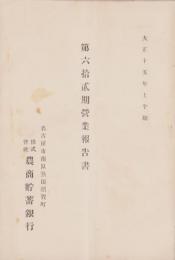 大正十五年上半期
第六拾貳期營業報告書
名古屋市南區熱田須賀町
株式會社 農商貯蓄銀行